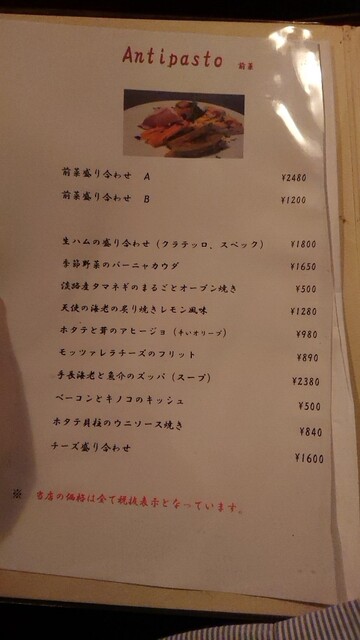 Antipasto 前菜
前菜盛り合わせ A ¥2480
前菜盛り合わせ B ¥1200
生ハムの盛り合わせ（クラテッロ、スペック） ¥1800
季節野菜のバーニャカウダ ¥1650
淡路産タマネギのまるごとオーブン焼き ¥500
天使の海老の炙り焼きレモン風味 ¥1280
ホタテと茸のアヒージョ（辛いオリーブ） ¥980
モッツァレラチーズのフリット ¥890
手長海老と魚介のズッパ（スープ） ¥2380
ベーコンとキノコのキッシュ ¥500
ホタテ貝柱のウニソース焼き ¥840
チーズ盛り合わせ ¥1600
※ 当店の価格は全て税抜表示となっています。